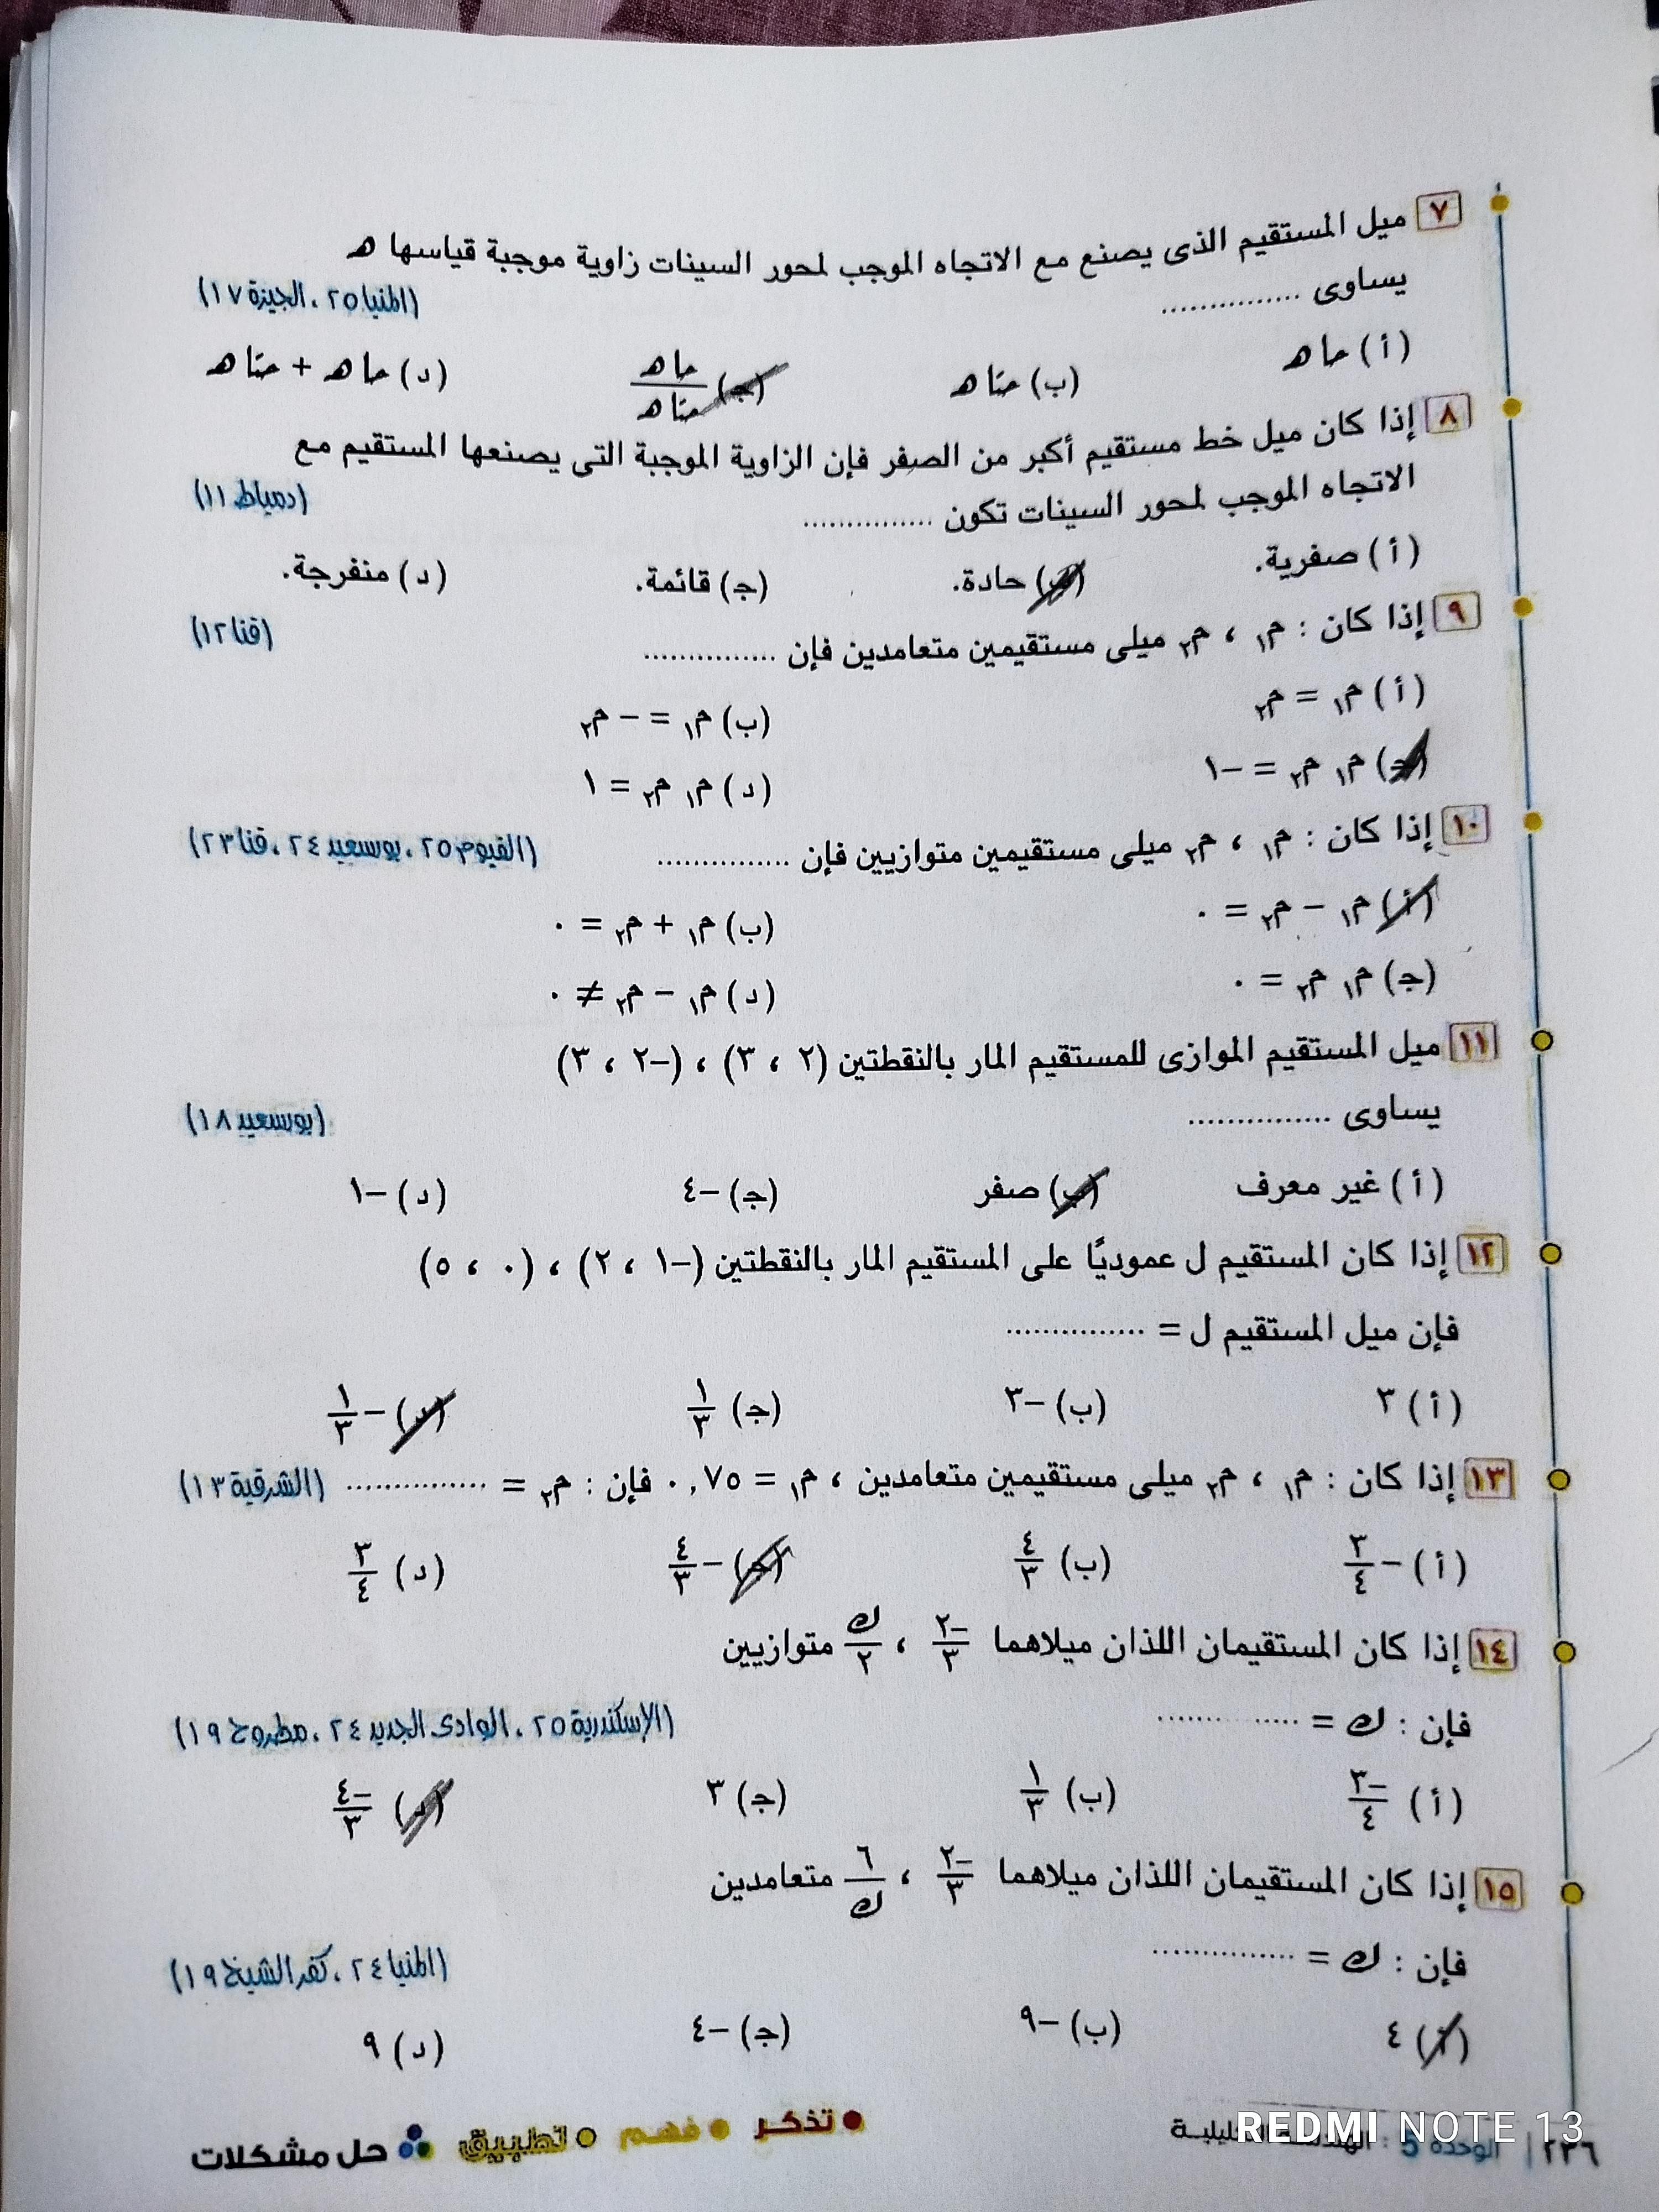 ٧ ميل المستقيم الذى يصنع مع الاتجاه الموجب لمحور السينات زاوية موجبة قياسها ﻫ
يساوى ............... (المنيا ٢٥ ، الجيزة ١٧)
(أ) حا ﻫ (ب) حتا ﻫ (ج) حا ﻫ / حتا ﻫ (د) حا ﻫ + حتا ﻫ
٨ إذا كان ميل خط مستقيم أكبر من الصفر فإن الزاوية الموجبة التى يصنعها المستقيم مع
الاتجاه الموجب لمحور السينات تكون ............... (دمياط ١١)
(أ) صفرية. (ب) حادة. (ج) قائمة. (د) منفرجة.
٩ إذا كان : م١ ، م٢ ميلى مستقيمين متعامدين فإن ............... (قنا ١٢)
(أ) م١ = م٢ (ب) م١ = – م٢
(ج) م١ م٢ = –١ (د) م١ م٢ = ١
١٠ إذا كان : م١ ، م٢ ميلى مستقيمين متوازيين فإن ............... (الفيوم ٢٥ ، بوسعيد ٢٤ ، قنا ٢٣)
(أ) م١ – م٢ = ٠ (ب) م١ + م٢ = ٠
(ج) م١ م٢ = ٠ (د) م١ – م٢ ≠ ٠
١١ ميل المستقيم الموازى للمستقيم المار بالنقطتين (٢ ، ٣) ، (–٢ ، ٣)
يساوى ............... (بوسعيد ١٨)
(أ) غير معرف (ب) صفر (ج) –٤ (د) –١
١٢ إذا كان المستقيم ل عموديًا على المستقيم المار بالنقطتين (–١ ، ٢) ، (٠ ، ٥)
فإن ميل المستقيم ل = ...............
(أ) ٣ (ب) –٣ (ج) ١/٣ (د) –١/٣
١٣ إذا كان : م١ ، م٢ ميلى مستقيمين متعامدين ، م١ = ٠,٧٥ فإن : م٢ = ............... (الشرقية ١٣)
(أ) –٣/٤ (ب) ٤/٣ (ج) –٤/٣ (د) ٣/٤
١٤ إذا كان المستقيمان اللذان ميلاهما –٢/٣ ، ك/٢ متوازيين
فإن : ك = ............... (الإسكندرية ٢٥ ، الوادى الجديد ٢٤ ، مطروح ١٩)
(أ) –٣/٤ (ب) ١/٣ (ج) ٣ (د) –٤/٣
١٥ إذا كان المستقيمان اللذان ميلاهما –٢/٣ ، ٦/ك متعامدين
فإن : ك = ............... (المنيا ٢٤ ، كفر الشيخ ١٩)
(أ) ٤ (ب) –٩ (ج) –٤ (د) ٩
٢٣٦ | الوحدة 5 : الهندسة التحليلية ● تذكر ● فهم ● تطبيق حل مشكلات
REDMI NOTE 13